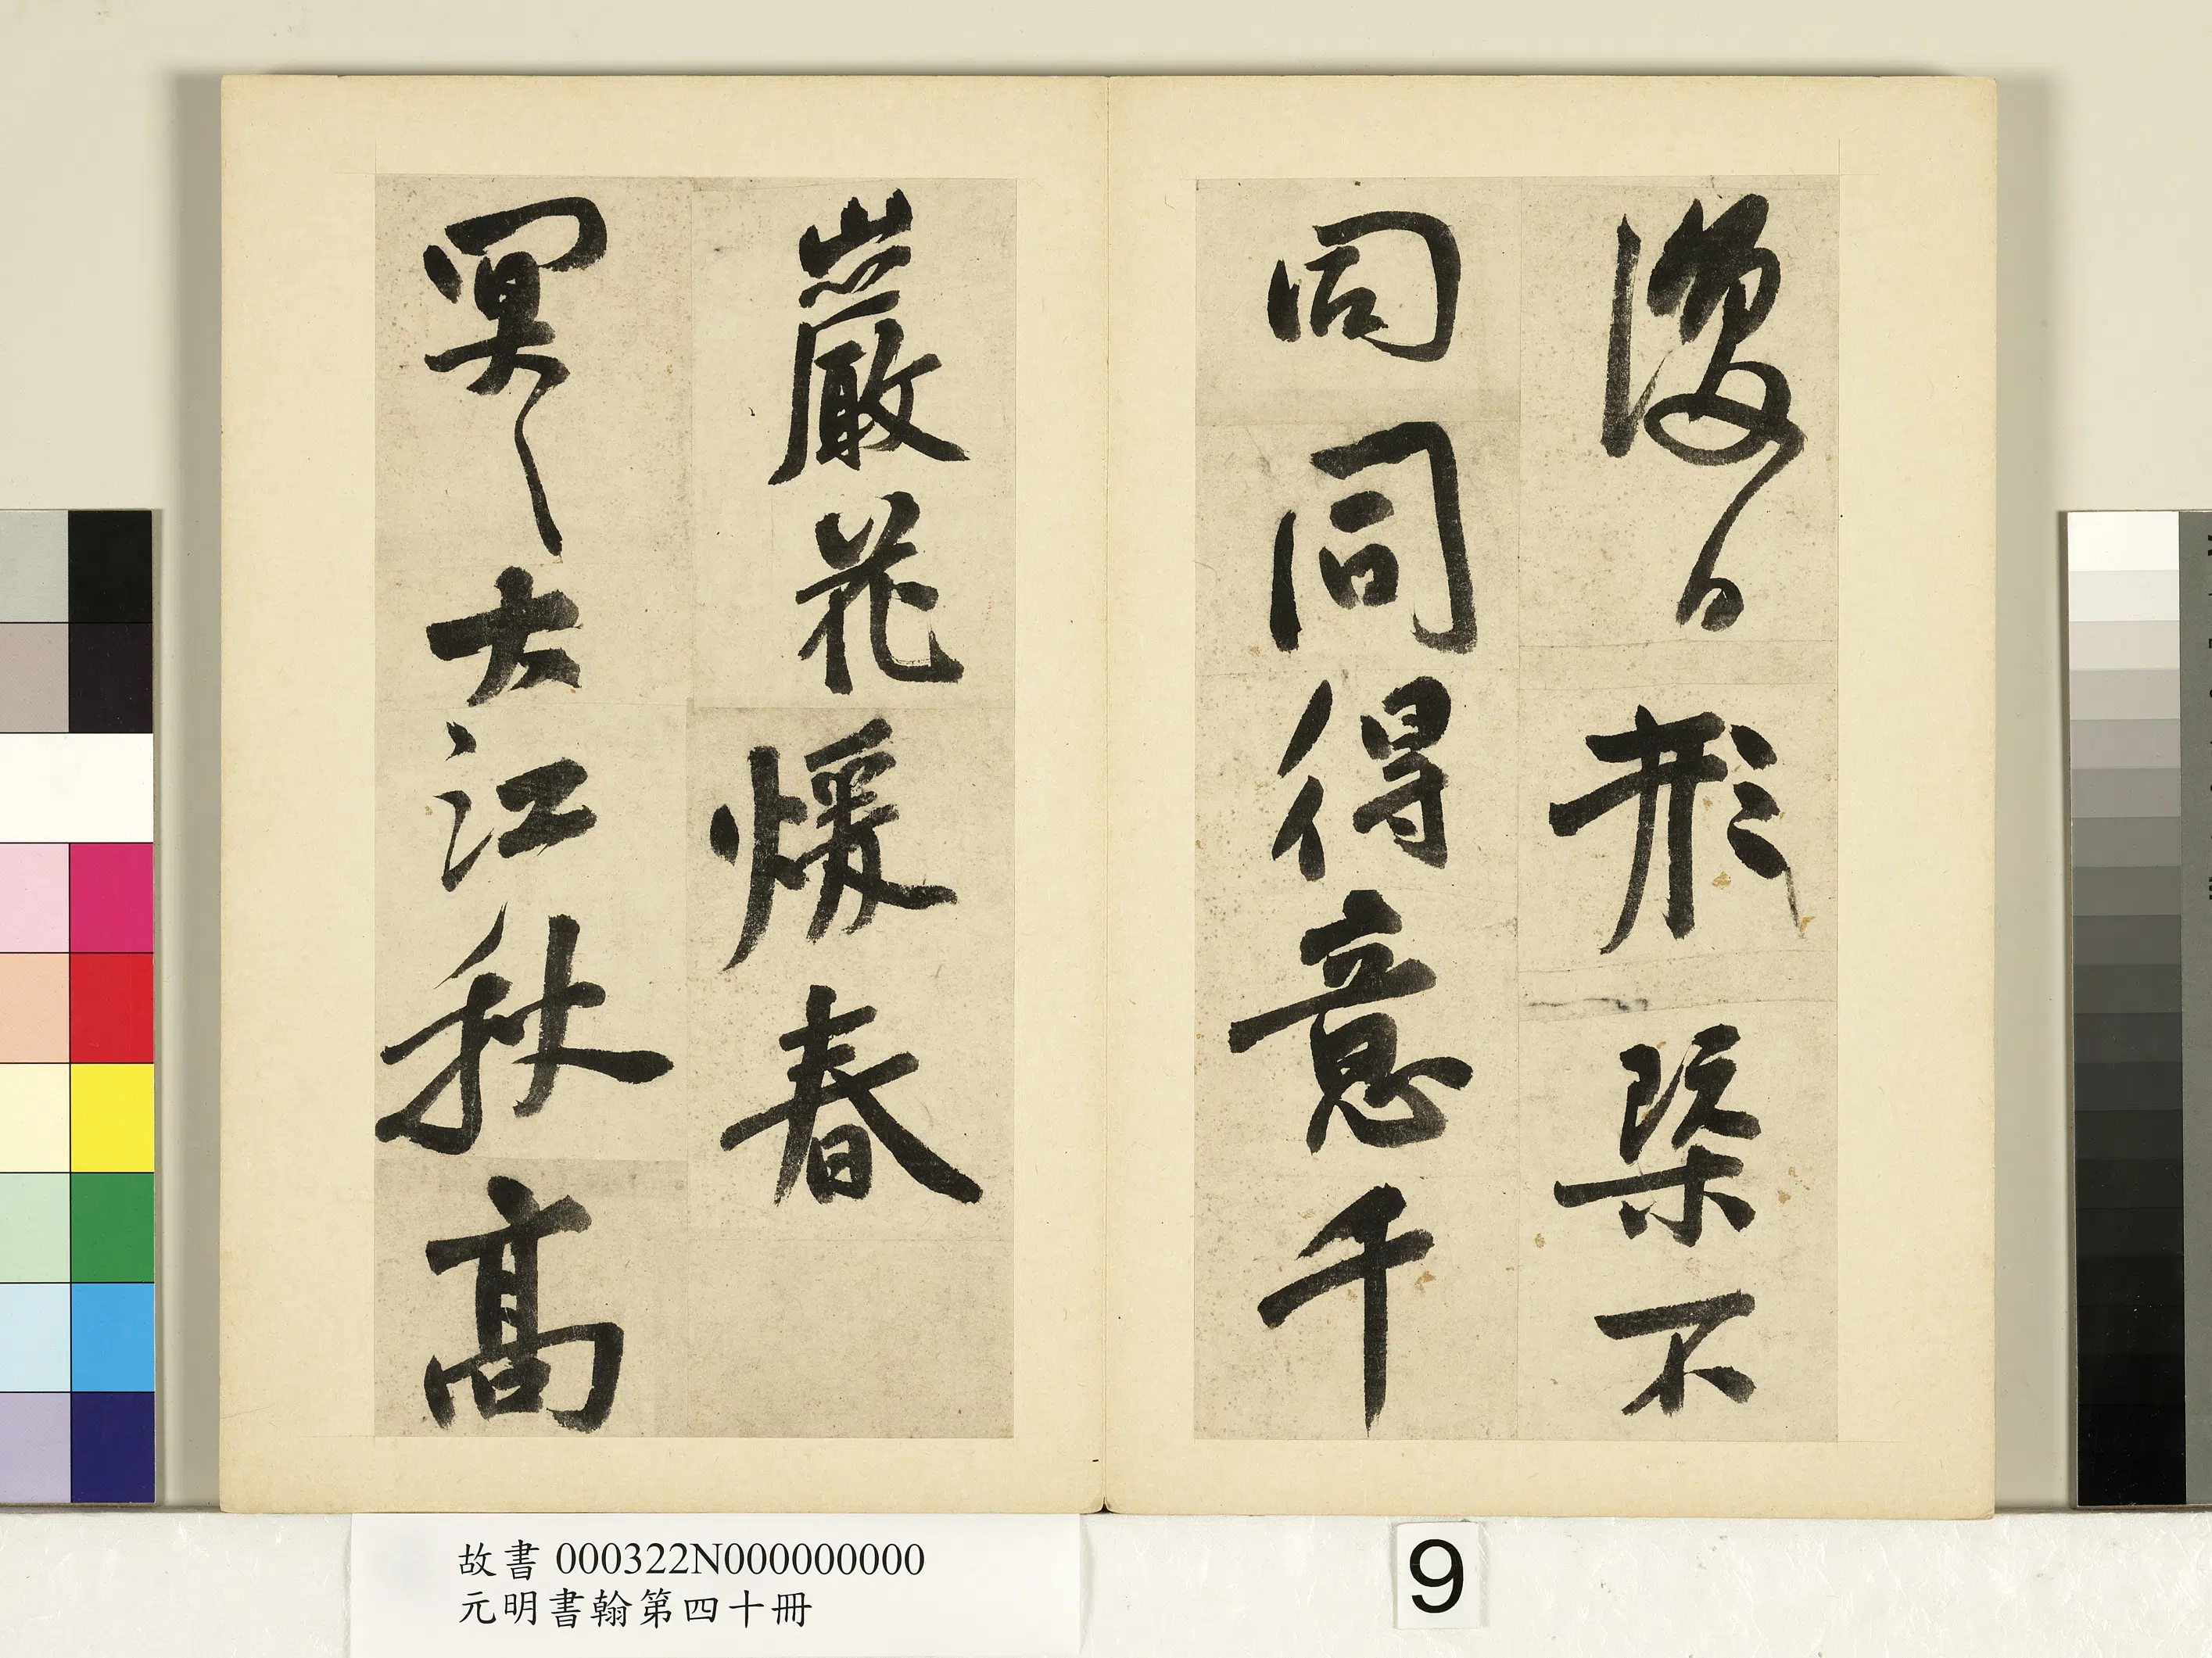 形槩不
同同得意千
巖花煖春
冥々大江秋高
故書 000322N000000000
元明書翰第四十冊
9